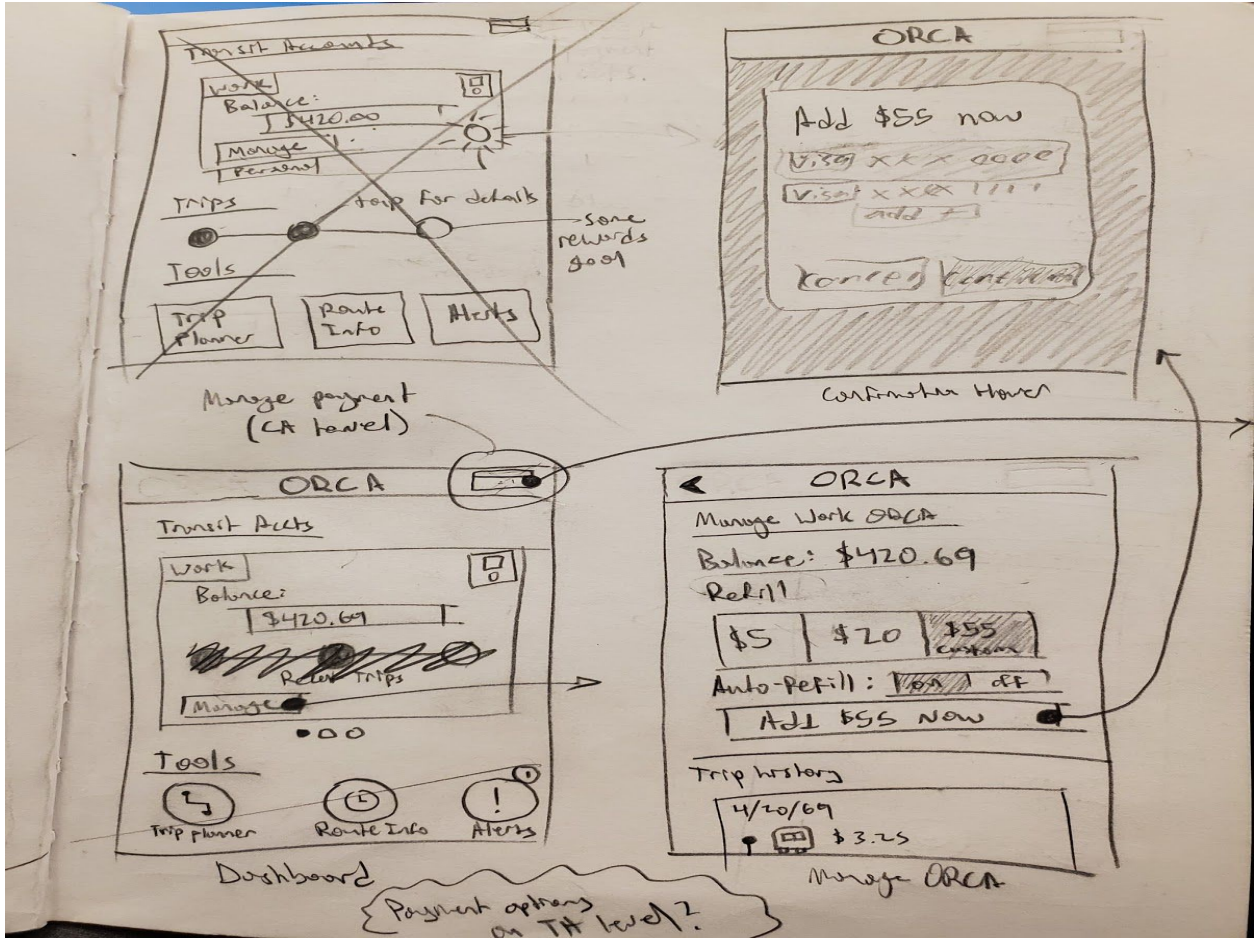 Transit Accounts
Work
Balance:
$420.00
Manage
Personal
Trips
tap for details
some
rewards
goal
Tools
Trip
Planner
Route
Info
Alerts
ORCA
Add $55 now
Visa x x x 0000
Visa x x x 1111
add +
Cancel
Hover
Manage payment
(CA level)
ORCA
Transit Accts
Work
Balance:
$420.69
Recent Trips
Manage
Tools
Trip planner
Route Info
Alerts
Dashboard
ORCA
Manage Work ORCA
Balance: $420.69
Refill
$5
$20
$55
custom
Auto-Refill: on off
Add $55 Now
Trip history
4/20/69
$3.25
Manage ORCA
Payment options
on TA level?